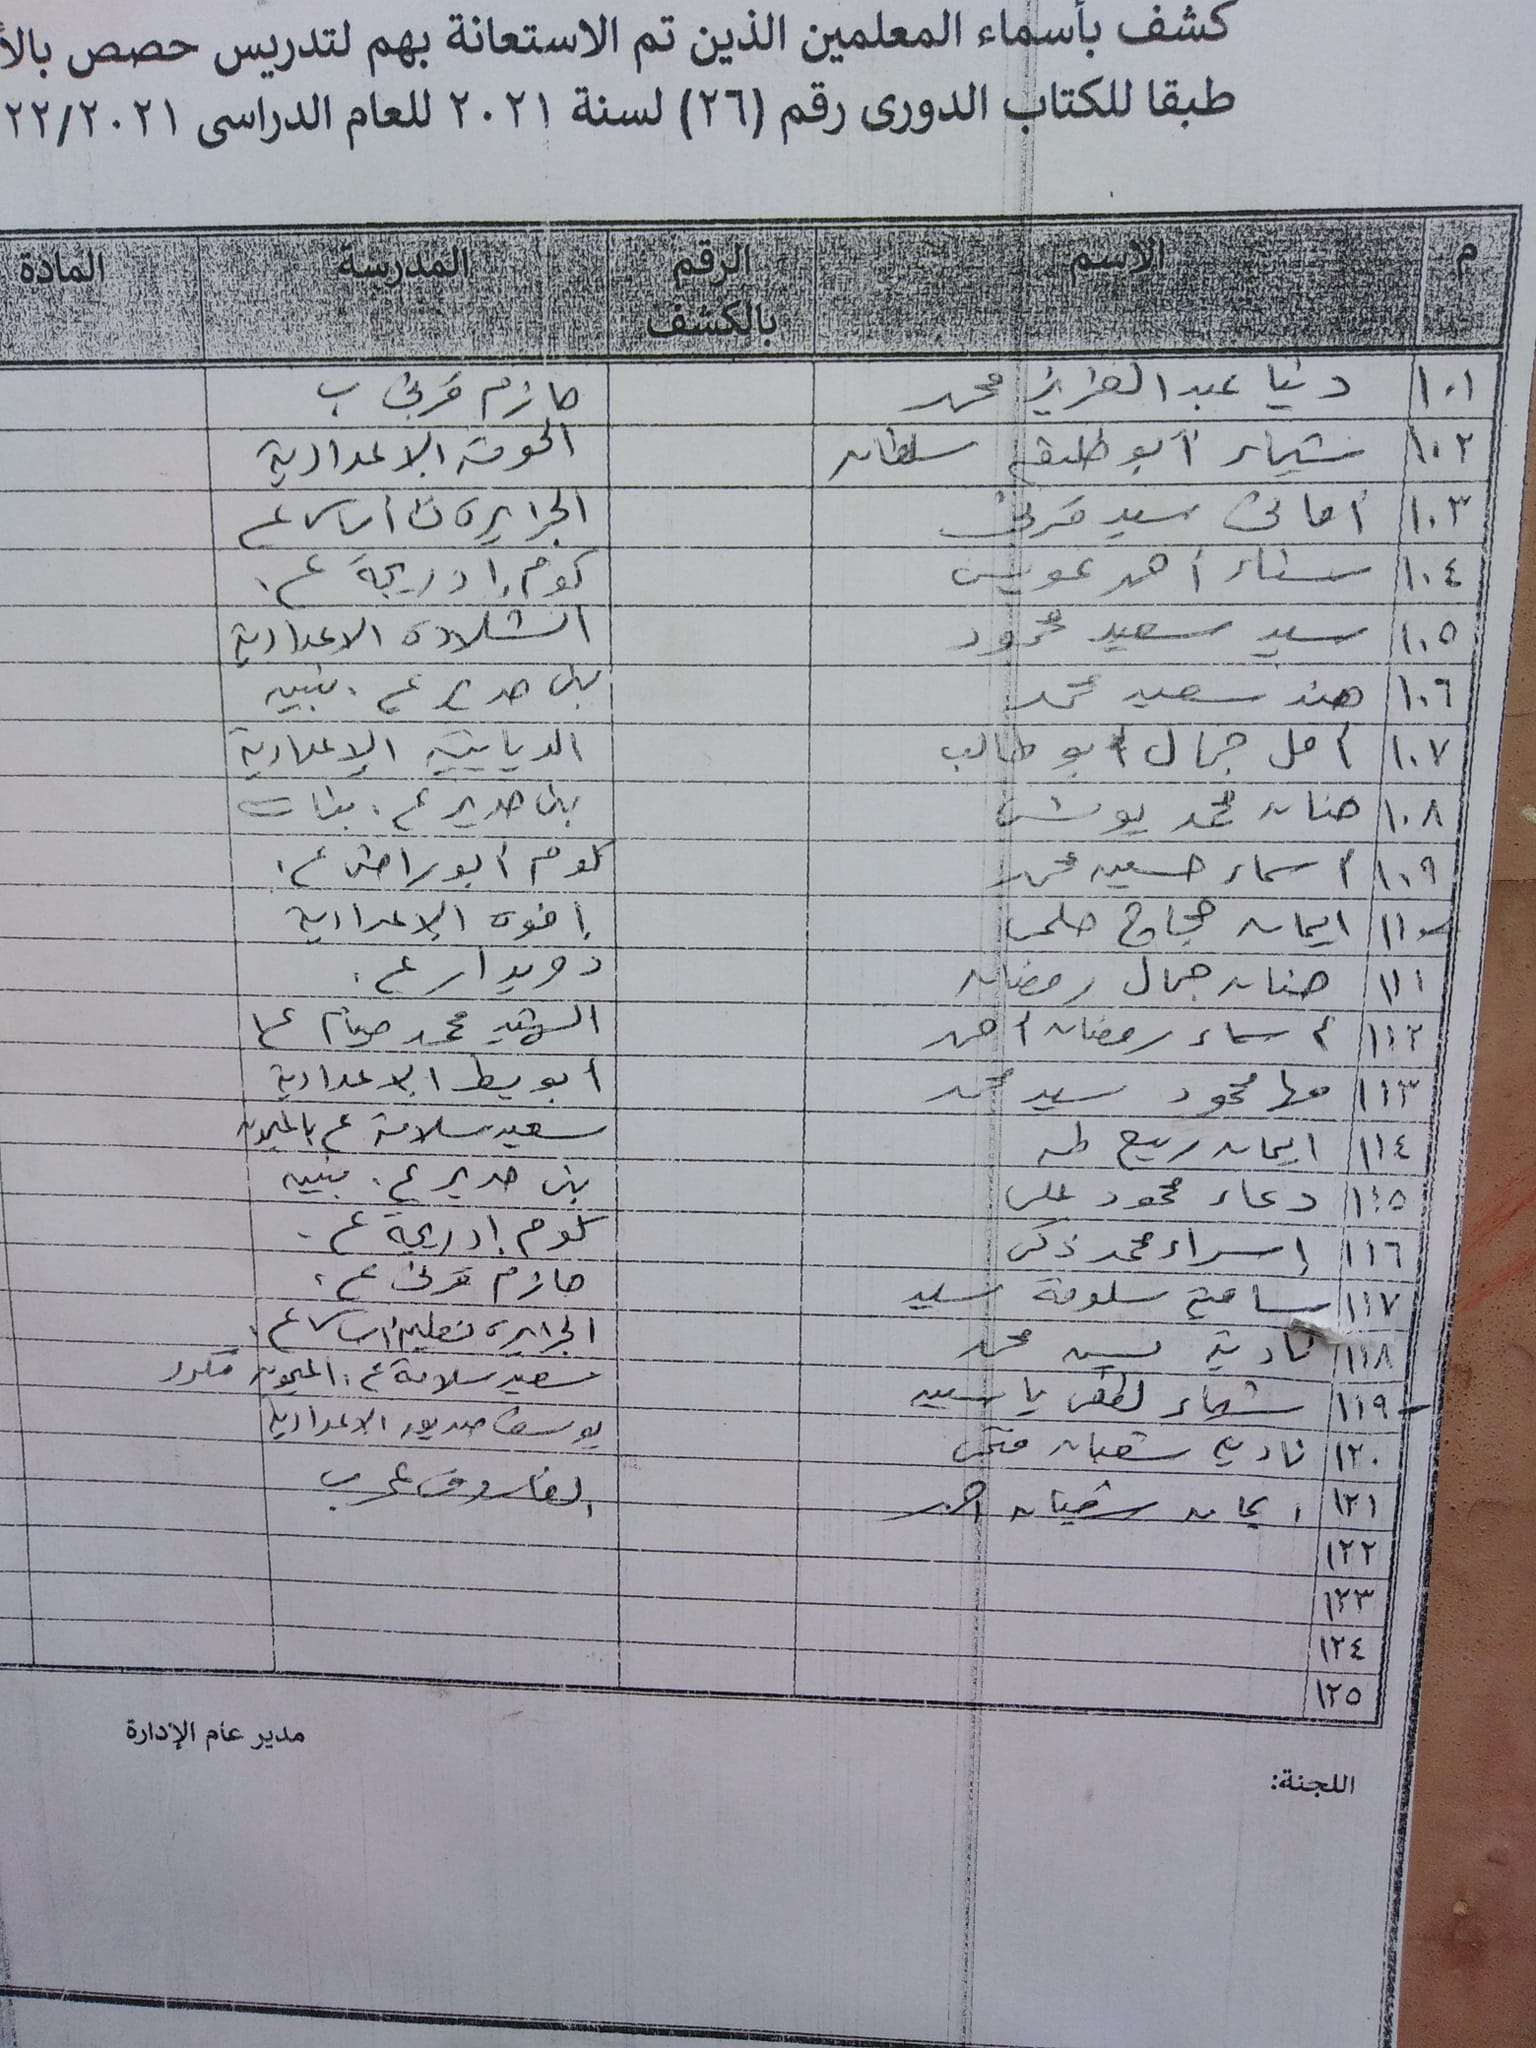 كشف بأسماء المعلمين الذين تم الاستعانة بهم لتدريس حصص
طبقا للكتاب الدورى رقم (٢٦) لسنة ٢٠٢١ للعام الدراسى ٢٢/٢٠٢١
م الاسم الرقم بالكشف المدرسة المادة
١٠١ دنيا عبد العزيز محمد حازم قرنى ب
١٠٢ شيماء أبو طليقه سلطان الحومة الإعدادية
١٠٣ أمانى سيد قرنى الجزيرة ت أساسى ع
١٠٤ سناء أحمد عويس كوم إدريجة ع.
١٠٥ سيد سعيد محمود الإعدادية
١٠٦ هند سعيد محمد بنى حدير ع. بنين
١٠٧ أمل جمال أبو طالب الديابية الإعدادية
١٠٨ حنان محمد بنى حدير ع. بنات
١٠٩ أسماء حسين محمد كوم أبو راضى ع.
١١٠ ايمان حجاج حلمى إفوه الإعدادية
١١١ حنان جمال رمضان ع.
١١٢ أسماء رمضان أحمد الشهيد محمد صيام ع
١١٣ مها محمود سيد محمد أبويط الإعدادية
١١٤ ايمان ربيع طه سعيد سلامة ع بالميمون
١١٥ دعاء محمود على بنى حدير ع. بنين
١١٦ إسراء محمد زكى كوم إدريجة ع.
١١٧ سامح سلومة سيد حازم قرنى ع.
١١٨ نادية محمد الجزيرة تعليم أساسى ع.
١١٩ شيماء لطفى ياسين سعيد سلامة ع. الميمون مكرر
١٢٠ نادية شعبان فتحى يوسف صديق الاعدادية
١٢١ ايمان شعبان أحمد الفاروق عمر ب
١٢٢
١٢٣
١٢٤
١٢٥
مدير عام الإدارة
اللجنة: